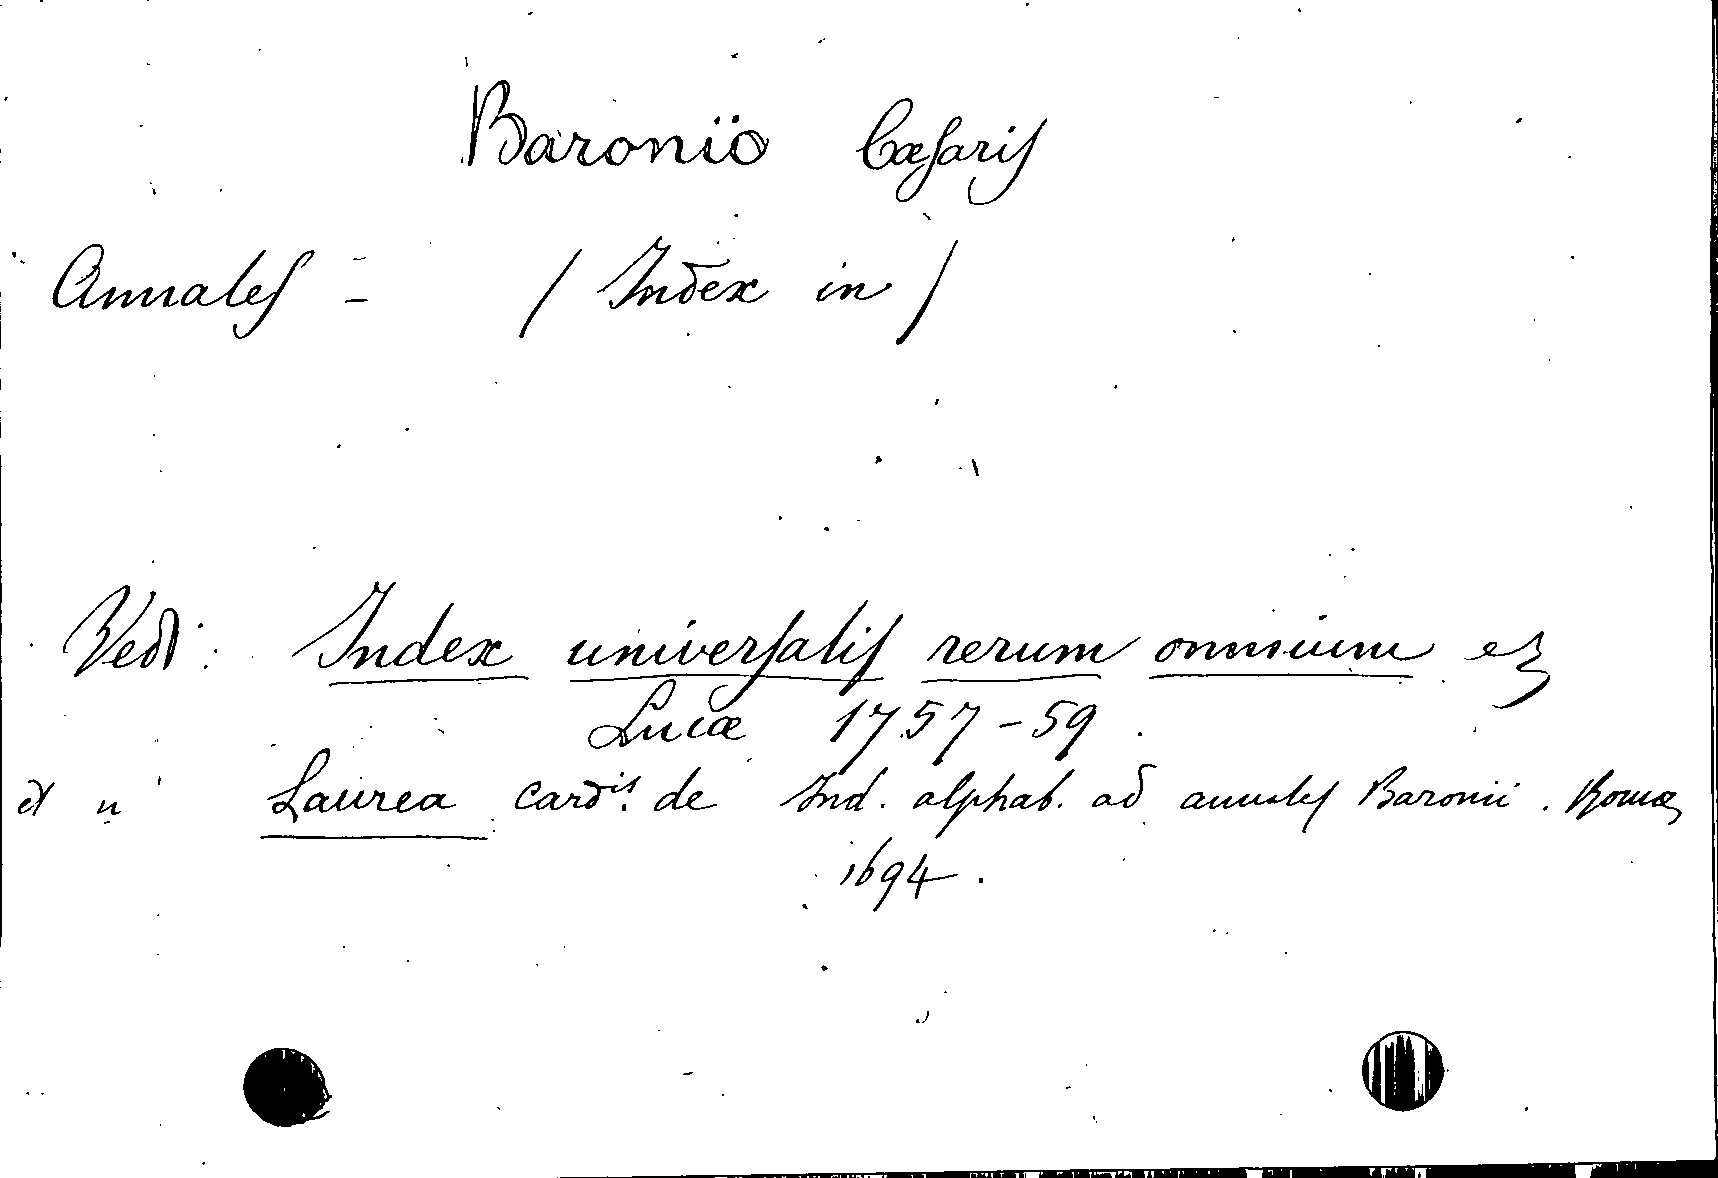 Baronio Cæsaris
Annales = / Index in /
Vedi: Index universalis rerum omnium etc
Lucæ 1757-59.
et " Laurea card.is de Ind. alphab. ad annales Baronii. Romæ
1694.